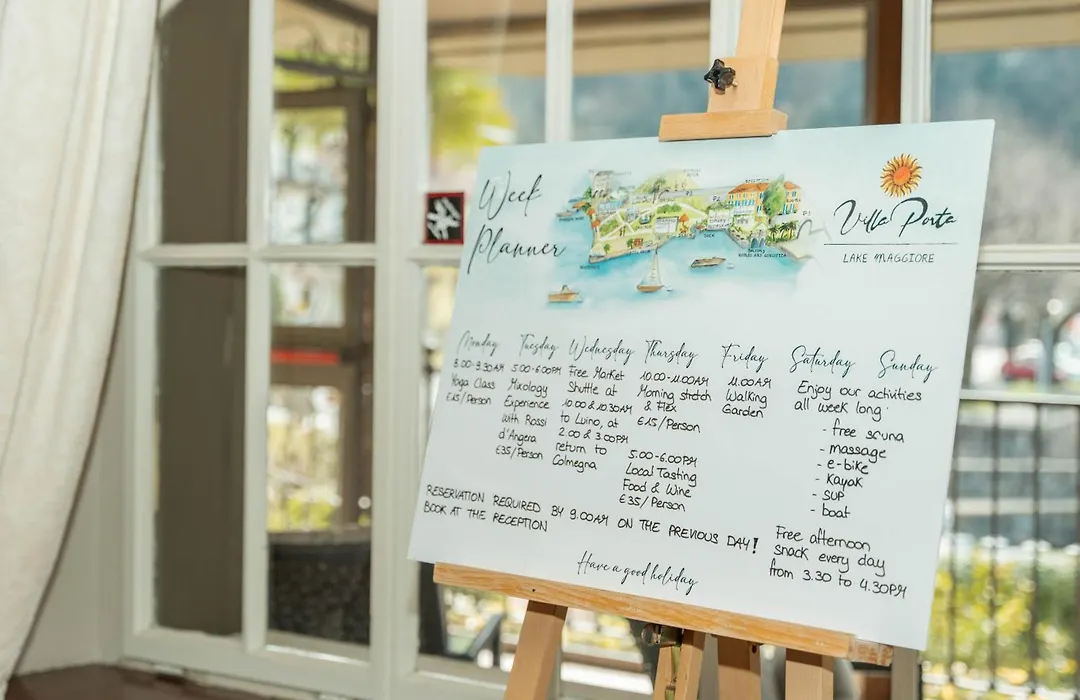 Week
Planner
Villa Porta
LAKE MAGGIORE
Monday
8.00-9.30AM
Yoga Class
€15/Person
Tuesday
5.00-6.00PM
Mixology
Experience
with Rossi
d'Angera
€35/Person
Wednesday
Free Market
Shuttle at
10.00 & 10.30AM
to Luino, at
2.00 & 3.00PM
return to
Colmegna
Thursday
10.00-11.00AM
Morning stretch
& Flex
€15/Person
5.00-6.00PM
Local Tasting
Food & Wine
€35/Person
Friday
11.00AM
Walking
Garden
Saturday
Sunday
Enjoy our activities
all week long
- free sauna
- massage
- e-bike
- Kayak
- SUP
- boat
RESERVATION REQUIRED BY 9.00AM ON THE PREVIOUS DAY!
BOOK AT THE RECEPTION
Free afternoon
snack every day
from 3.30 to 4.30PM
Have a good holiday